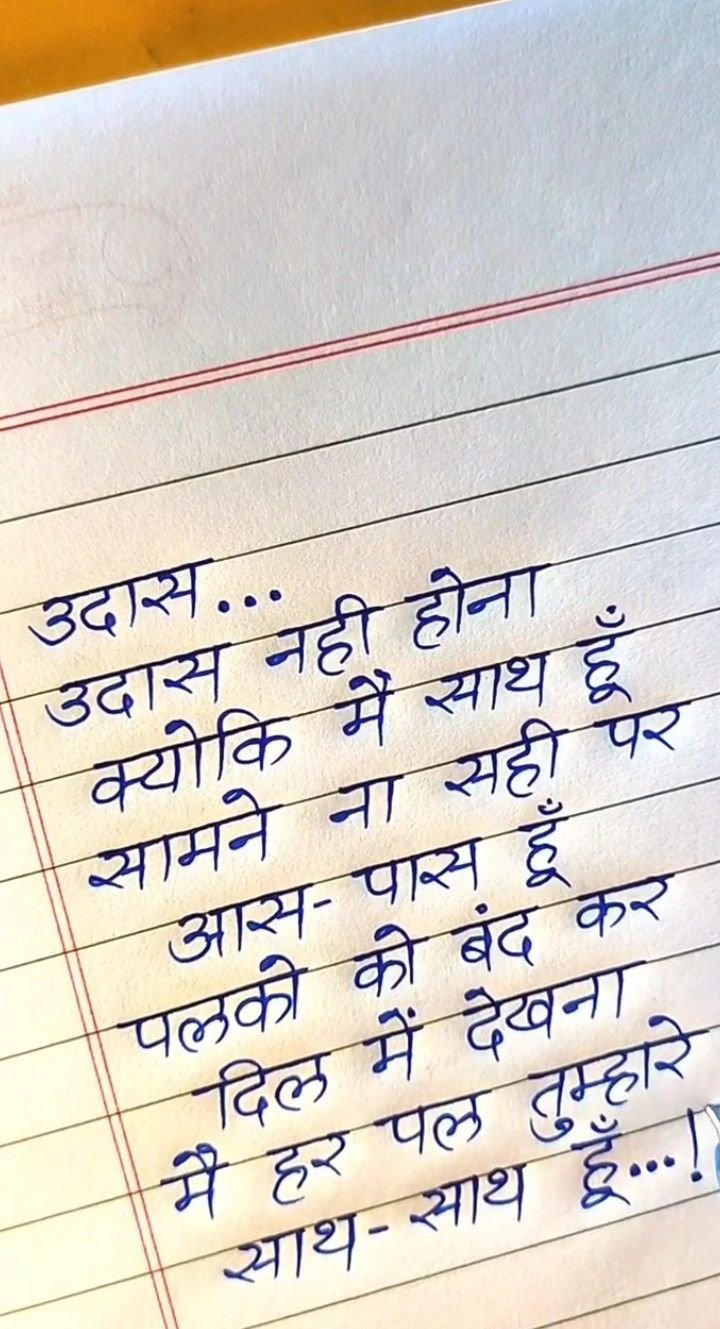 उदास...
उदास नही होना
क्योकि मैं साथ हूँ
सामने ना सही पर
आस-पास हूँ
पलको को बंद कर
दिल में देखना
मै हर पल तुम्हारे
साथ-साथ हूँ...!